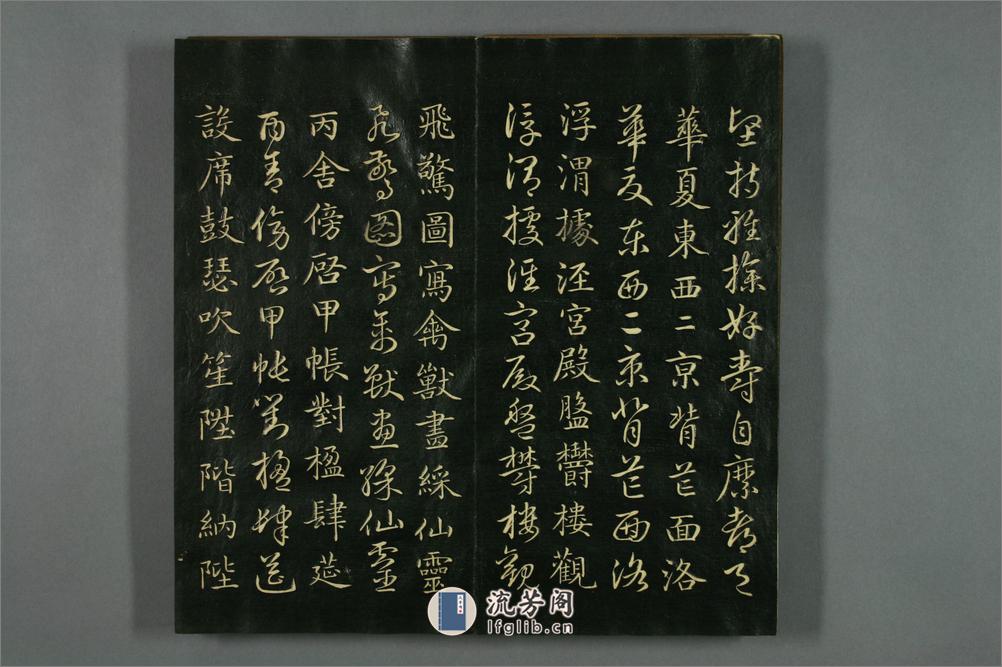 堅持雅操好爵自縻都邑
華夏東西二京背芒面洛
華夏東西二京背芒面洛
浮渭據涇宮殿盤鬱樓觀
浮渭據涇宮殿盤鬱樓觀
飛驚圖寫禽獸畫綵仙靈
飛驚圖寫禽獸畫綵仙靈
丙舍傍啓甲帳對楹肆筵
丙舍傍啓甲帳對楹肆筵
設席鼓瑟吹笙陞階納陛
流芳阁
lfglib.cn